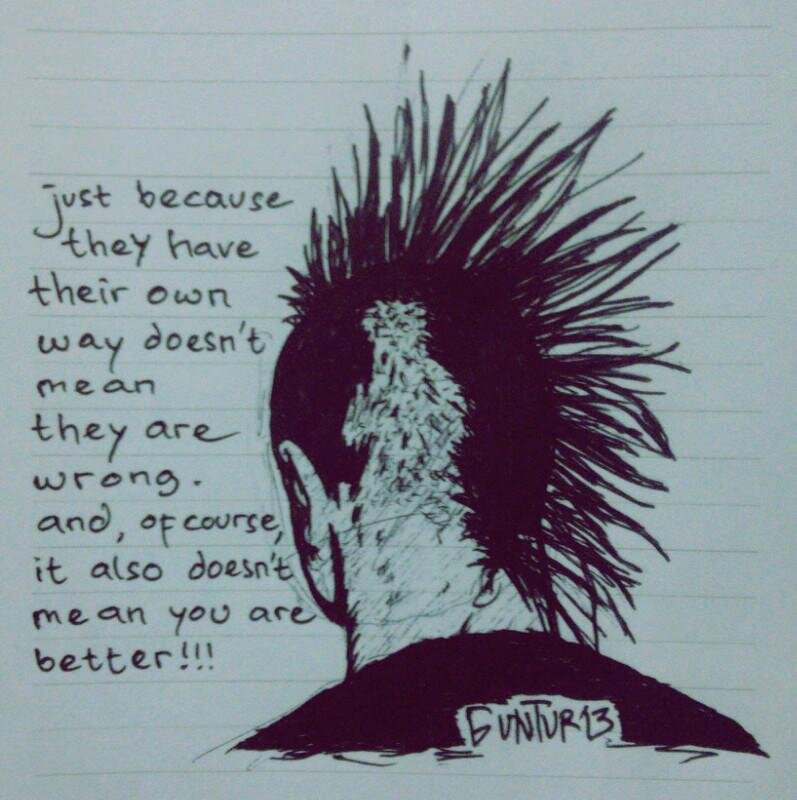 just because
they have
their own
way doesn't
mean
they are
wrong.
and, of course,
it also doesn't
mean you are
better!!!
GUNTUR13